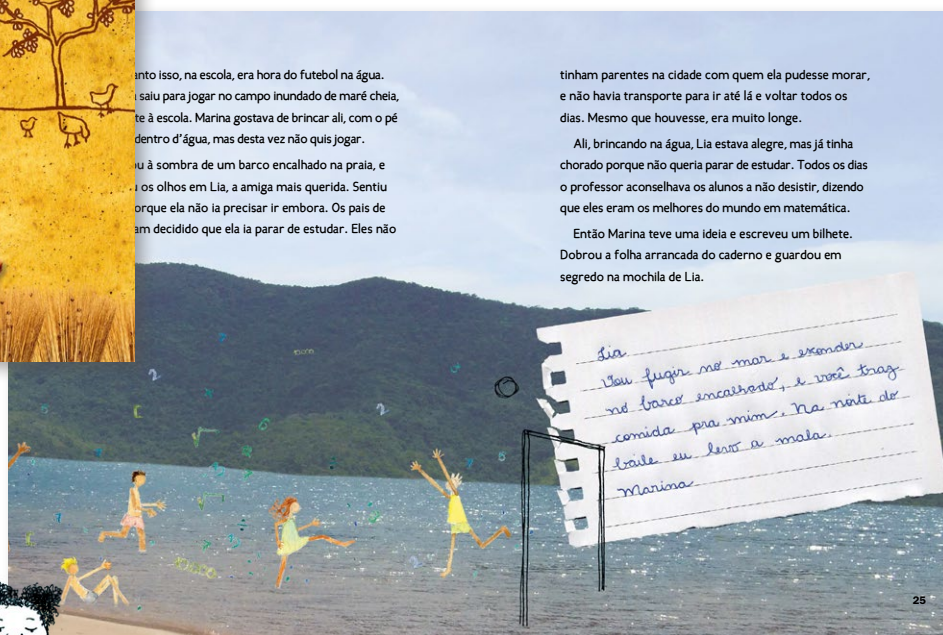 anto isso, na escola, era hora do futebol na água.
saiu para jogar no campo inundado de maré cheia,
te à escola. Marina gostava de brincar ali, com o pé
dentro d’água, mas desta vez não quis jogar.
ou à sombra de um barco encalhado na praia, e
os olhos em Lia, a amiga mais querida. Sentiu
porque ela não ia precisar ir embora. Os pais de
am decidido que ela ia parar de estudar. Eles não
tinham parentes na cidade com quem ela pudesse morar,
e não havia transporte para ir até lá e voltar todos os
dias. Mesmo que houvesse, era muito longe.
Ali, brincando na água, Lia estava alegre, mas já tinha
chorado porque não queria parar de estudar. Todos os dias
o professor aconselhava os alunos a não desistir, dizendo
que eles eram os melhores do mundo em matemática.
Então Marina teve uma ideia e escreveu um bilhete.
Dobrou a folha arrancada do caderno e guardou em
segredo na mochila de Lia.
Lia
Vou fugir no mar e esconder
no barco encalhado, e você traz
comida pra mim. Na noite do
baile eu levo a mala.
Marina
25